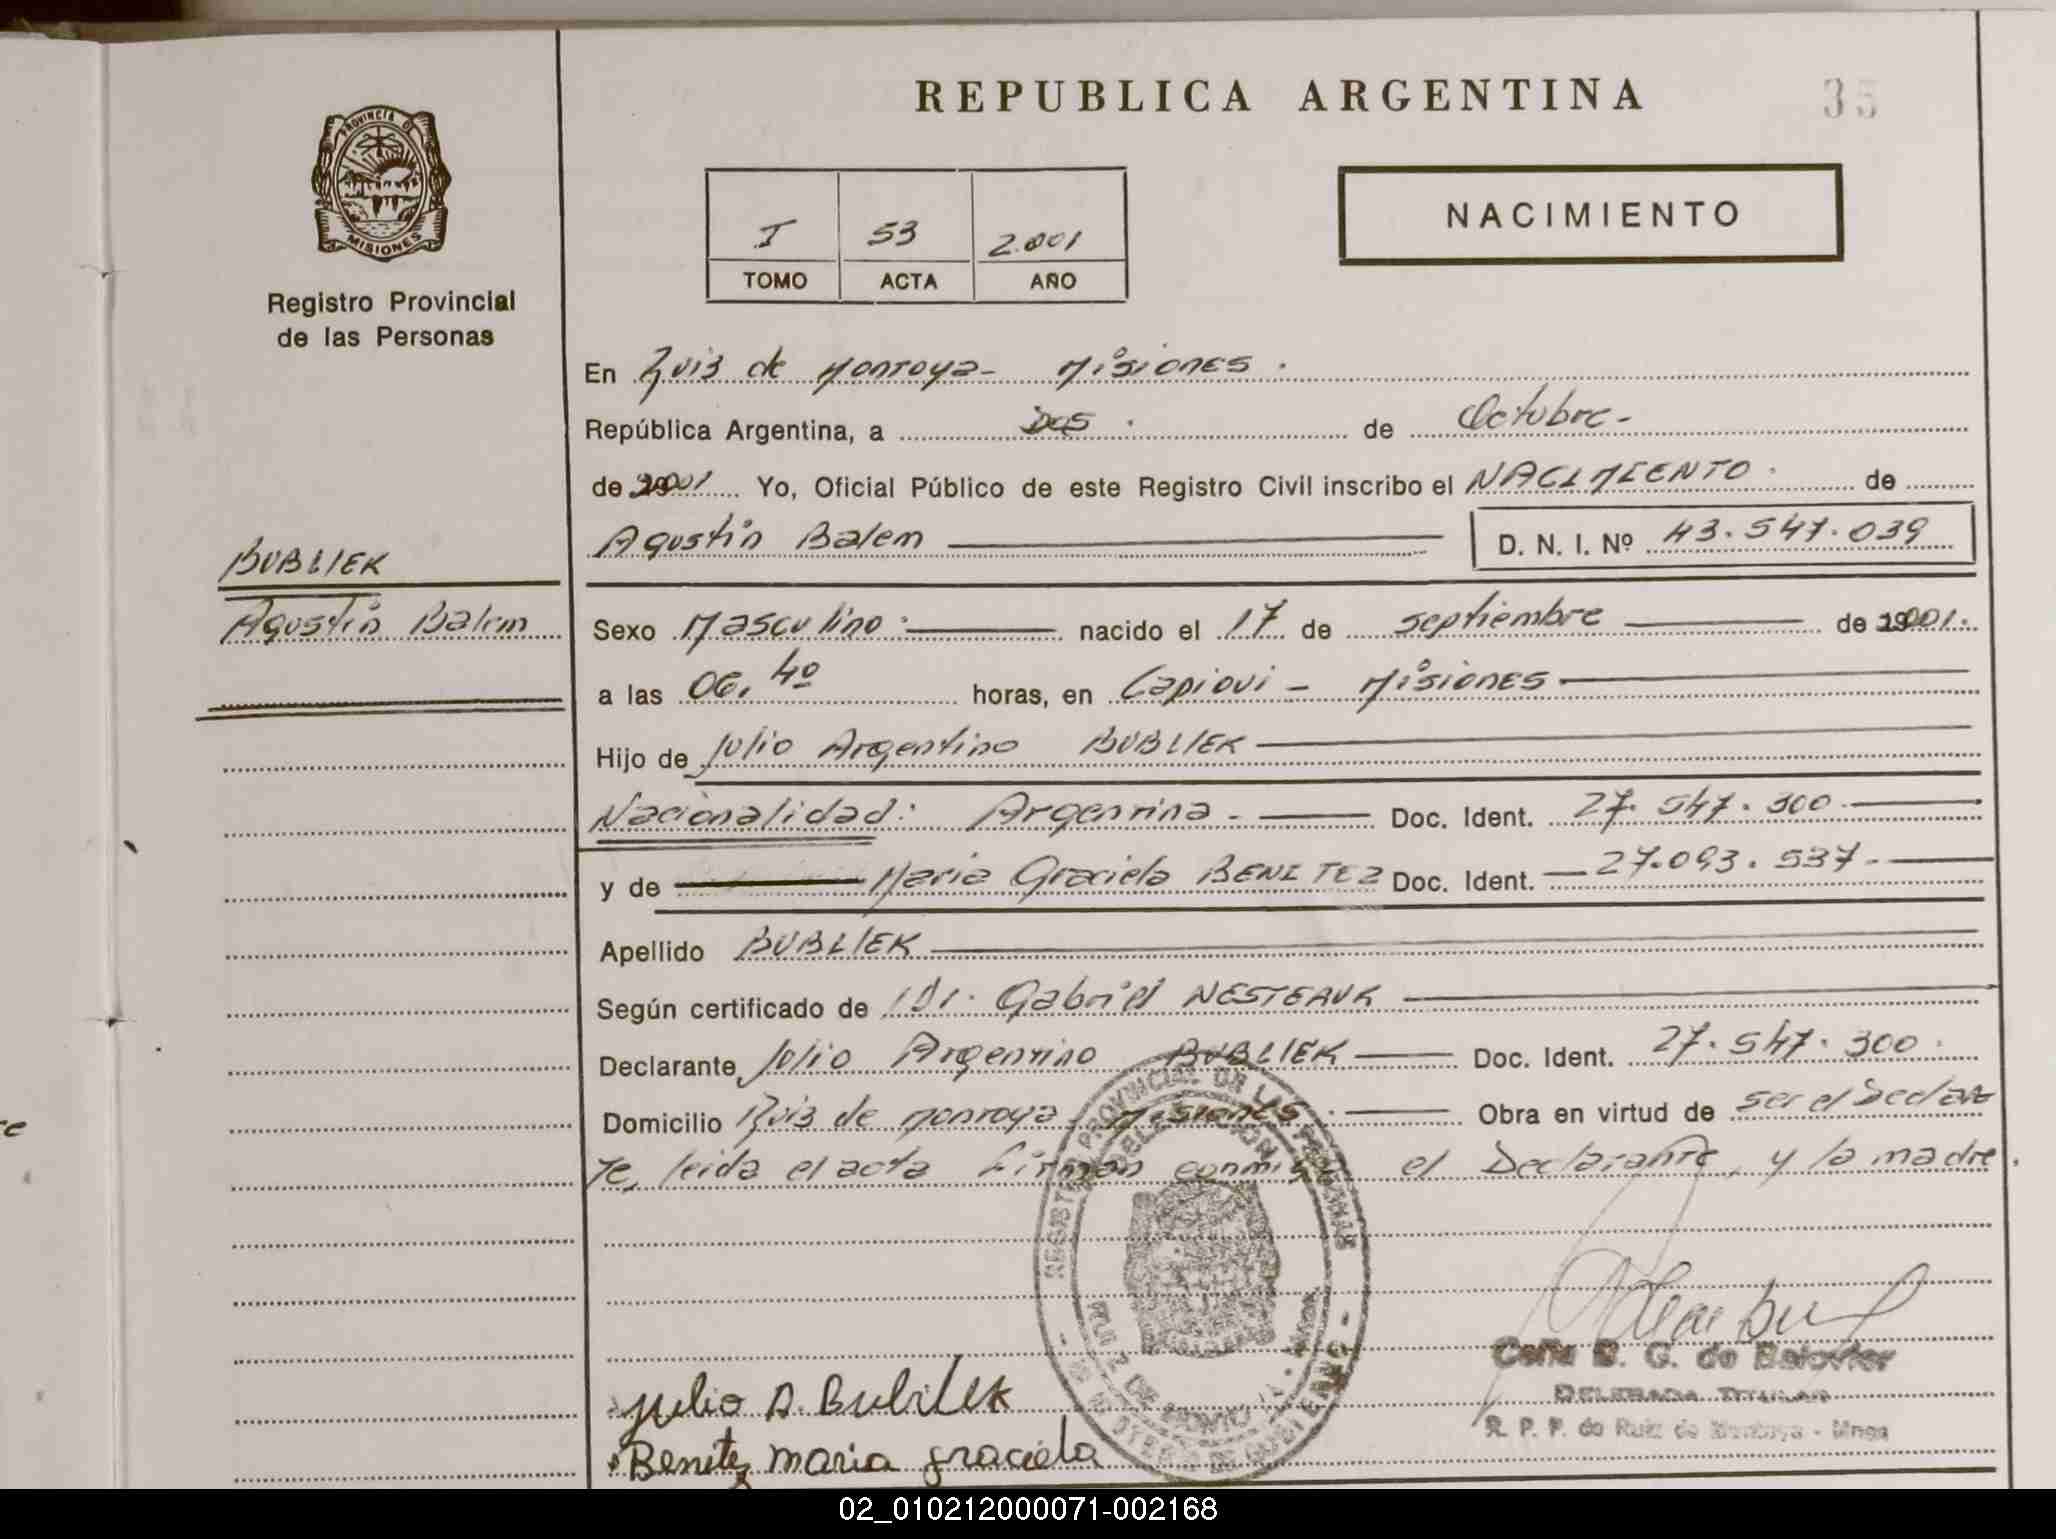 REPUBLICA ARGENTINA
35
PROVINCIA DE
MISIONES
Registro Provincial
de las Personas
I 53 2.001
TOMO ACTA AÑO
NACIMIENTO
En Ruiz de Montoya - Misiones.
República Argentina, a Dos. de Octubre -
de 2001 Yo, Oficial Público de este Registro Civil inscribo el NACIMIENTO. de
Agustin Balem D. N. I. Nº 43.547.039
BUBLIEK
Agustin Balem
Sexo Masculino. nacido el 17 de septiembre de 2001.
a las 06,40 horas, en Capiovi - Misiones
Hijo de Julio Argentino BUBLIEK
Nacionalidad: Argentina. - Doc. Ident. 27.547.300.
y de Maria Graciela BENITEZ Doc. Ident. 27.093.537.
Apellido BUBLIEK
Según certificado de Dr. Gabriel
Declarante Julio Argentino BUBLIEK Doc. Ident. 27.547.300.
Domicilio Ruiz de Montoya - Misiones. Obra en virtud de ser el Declaran
te, leida el acta Firman conmigo el Declarante, y la madre.
REGISTRO PROVINCIAL DE LAS PERSONAS
RUIZ DE MONTOYA
Julio A. Bubliek
Benitez maria graciela
DELEGADA TITULAR
R. P. P. de Ruiz de Montoya - Mnes
02_010212000071-002168